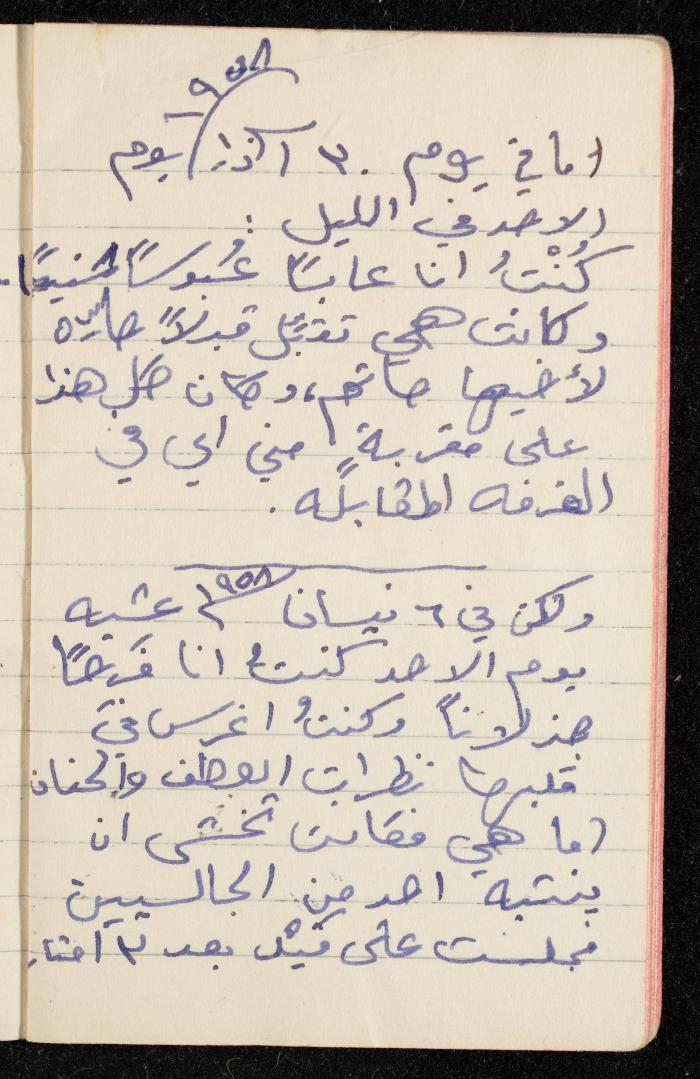 ١٩٥٨
اما في يوم ٣٠ آذار يوم
الاحد في الليل :
كُنْتُ انا عابسًا عُبوسًا
وكانت هي تقبّل قبلاً حارّه
لأخيها حاتم، وكان كل هذا
على مقربةٍ مني اي في
الغرفه المقابله .
ولكن في ٦ نيسان ١٩٥٨ عشيه
يوم الاحد كنتُ انا فَرِحًا
جذلاناً وكنتُ اغرس في
قلبها نظرات العطف والحنان
اما هي فكانت تخشى ان
ينتبه احد من الجالسيين
فجلست على بعد ٣ امتار